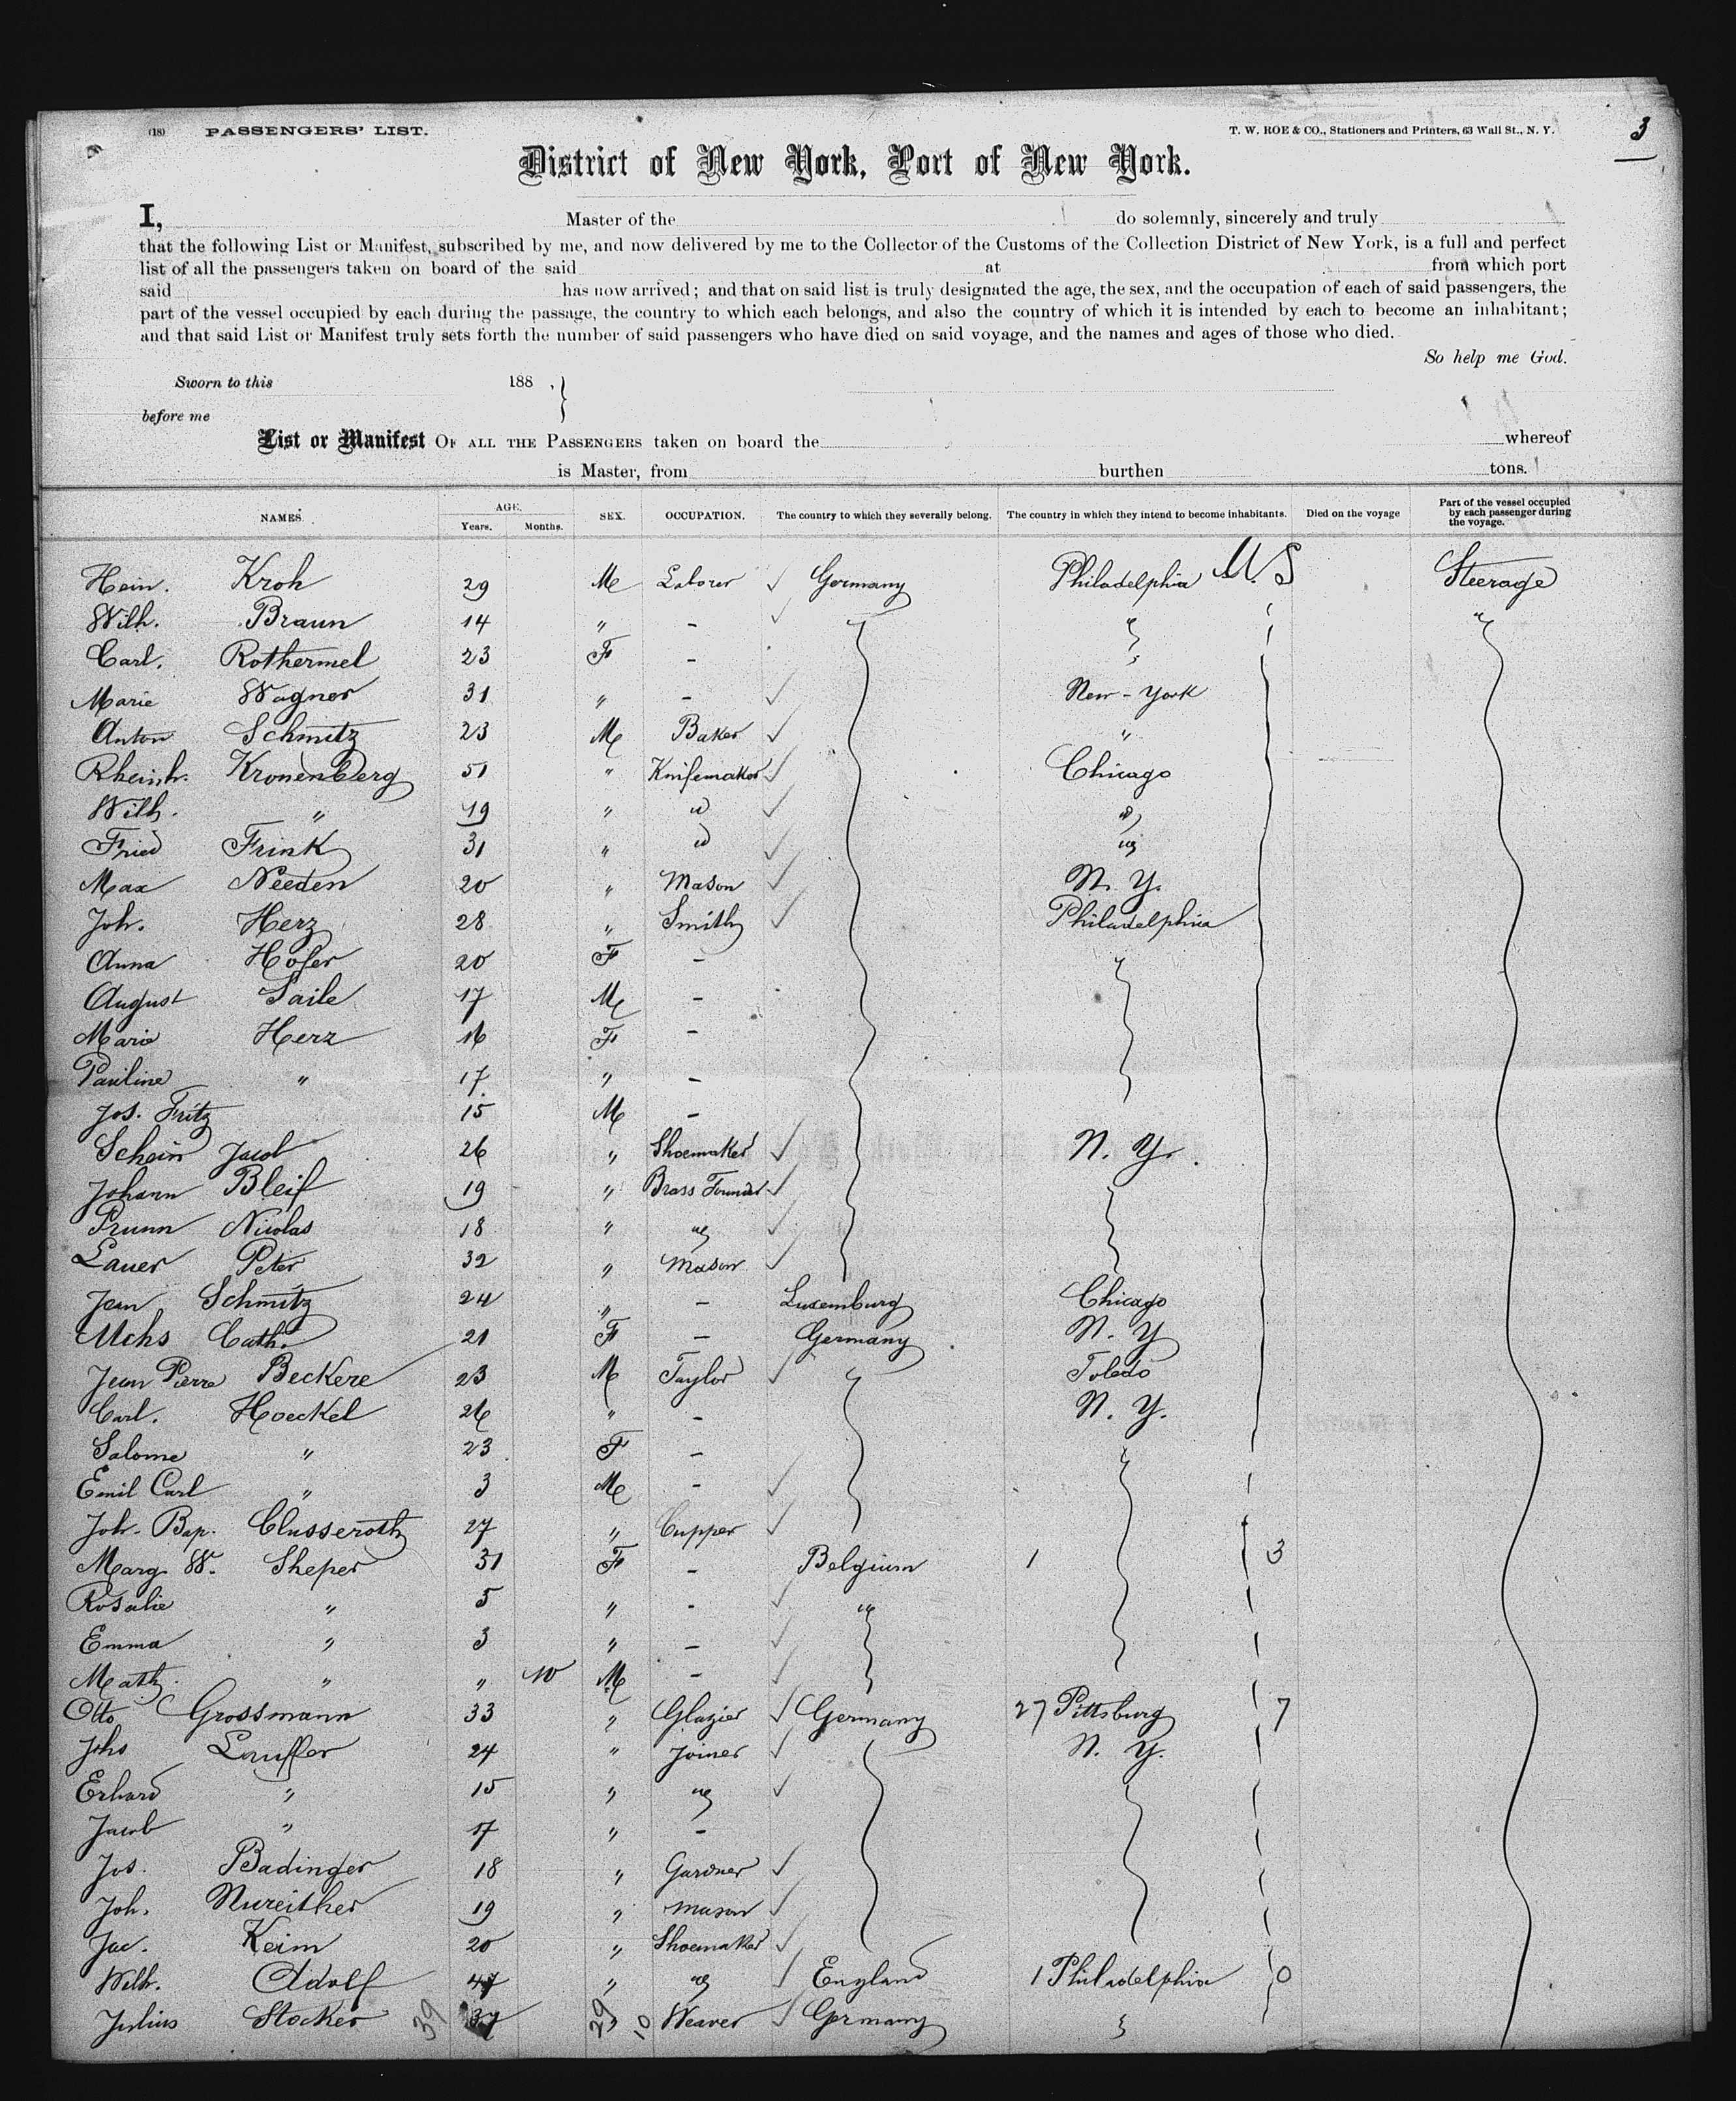 (18) PASSENGERS' LIST. T. W. ROE & CO., Stationers and Printers, 63 Wall St., N. Y. 3
District of New York, Port of New York.
I, Master of the do solemnly, sincerely and truly
that the following List or Manifest, subscribed by me, and now delivered by me to the Collector of the Customs of the Collection District of New York, is a full and perfect
list of all the passengers taken on board of the said at from which port
said has now arrived; and that on said list is truly designated the age, the sex, and the occupation of each of said passengers, the
part of the vessel occupied by each during the passage, the country to which each belongs, and also the country of which it is intended by each to become an inhabitant;
and that said List or Manifest truly sets forth the number of said passengers who have died on said voyage, and the names and ages of those who died.
So help me God.
Sworn to this 188 ,
before me
List or Manifest OF ALL THE PASSENGERS taken on board the whereof
is Master, from burthen tons.
NAMES. AGE. Years. Months. SEX. OCCUPATION. The country to which they severally belong. The country in which they intend to become inhabitants. Died on the voyage Part of the vessel occupied by each passenger during the voyage.
Hein. Kroh 29 M Laborer ✓ Germany Philadelphia U.S Steerage
Wilh. Braun 14 " - ✓ " "
Carl. Rothermel 23 F -
Marie Wagner 31 " - ✓ New-York
Anton Schmitz 23 M Baker ✓ "
Rheinh. Kronenberg 51 " Knifemaker ✓ Chicago
Wilh. " 19 " " ✓ "
Fried Frink 31 " " ✓ "
Max Needen 20 " Mason ✓ N. Y.
Joh. Herz 28 " Smith ✓ Philadelphia
Anna Hofer 20 F -
August Saile 17 M -
Marie Herz 16 F -
Pauline " 17 " -
Jos. Fritz 15 M -
Schein Jacob 26 " Shoemaker ✓ N. Y.
Johann Bleif 19 " Brass Founder ✓
Prunn Nicolas 18 " " ✓
Lauer Peter 32 " Mason ✓
Jean Schmitz 24 " - Luxemburg Chicago
Cath. 21 F - Germany N. Y
Jean Pierre Beckere 23 M Taylor ✓ Toledo
Carl. Hoeckel 26 " - N. Y.
Salome " 23 F -
Emil Carl " 3 M - ✓
Joh. Bap. Clusseroth 27 " Cupper ✓
Marg. W. Sheper 31 F - Belgium 1 3
Rosalie " 5 " - ✓ "
Emma " 3 " - ✓
Math. " " 10 M - ✓
Otto Grossmann 33 " Glazier ✓ Germany 27 Pittsburg 7
Johs Lauffer 24 " Joiner ✓ N. Y.
Erhard " 15 " " ✓
Jacob " 17 " -
Jos. Badinger 18 " Gardner ✓
Joh. Nureither 19 " Mason ✓
Jac. Keim 20 " Shoemaker ✓
Wilh. Adolf 47 " " ✓ England 1 Philadelphia 0
Julius Stocker 39 37 " 29 10 Weaver ✓ Germany "